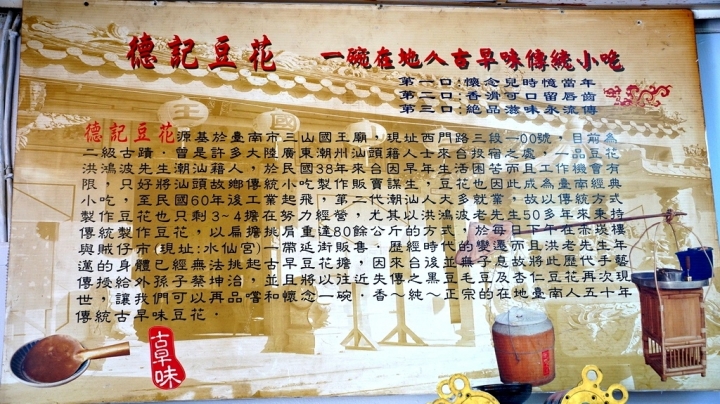 德記豆花 一碗在地人古早味傳統小吃
第一口:懷念兒時憶當年
第二口:香滑可口留唇齒
第三口:絕品滋味永流傳
德記豆花源基於臺南市三山國王廟，現址西門路三段一00號，目前為
二級古蹟，曾是許多大陸廣東潮州汕頭籍人士來台投宿之處，一品豆花
洪鴻波先生潮汕籍人，於民國38年來台因早年生活困苦而且工作機會有
限，只好將汕頭故鄉傳統小吃製作販賣謀生，豆花也因此成為臺南經典
小吃，至民國60年後工業起飛，第二代潮汕人大多就業，故以傳統方式
製作豆花也只剩3~4擔在努力經營，尤其以洪鴻波老先生50多年來秉持
傳統製作豆花，以扁擔挑肩重達80餘公斤的方式，於每日下午在赤崁樓
與賊仔市(現址:水仙宮)一帶延街販售，歷經時代的變遷而且洪老先生年
邁的身體已經無法挑起古早豆花擔，因來台後並無子息故將此歷代手藝
傳授給外孫子蔡坤治，並且將以往近失傳之黑豆毛豆及杏仁豆花再次現
世，讓我們可以再品嚐和懷念一碗．香～純～正宗的在地臺南人五十年
傳統古早味豆花．
王 國
古早味